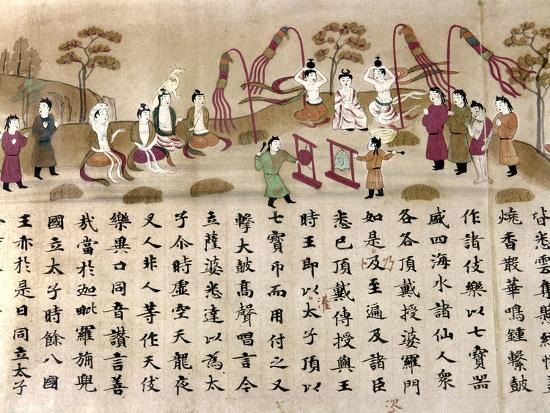 皆悉雲集懸繒
燒香散華鳴鍾擊鼓
作諸伎樂以七寶器
盛四海水諸仙人衆
各各頂戴授婆羅門
如是及至遍及諸臣
乃
悉已頂戴傳授與王
時王即以太子頂以
灌
七寶印而用付之又
擊大鼓高聲唱言今
立薩婆悉達以為太
子尒時虛空天龍夜
叉人非人等作天伎
樂異口同音讚言善
哉當於迦毗羅旆兜
國立太子時餘八國
王亦於是日同立太子